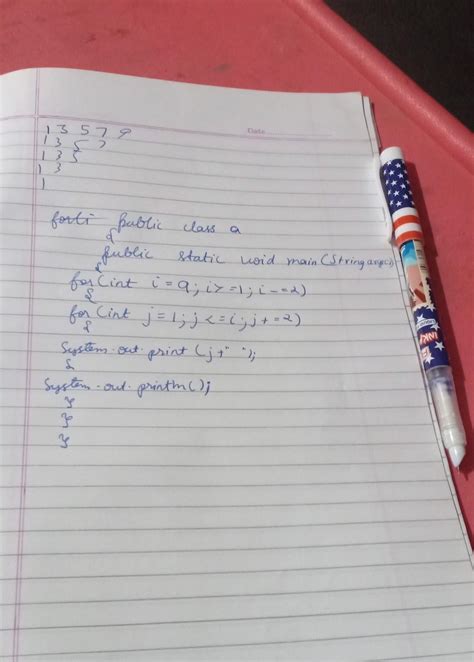 Date
1 3 5 7 9
1 3 5 7
1 3 5
1 3
1
public class a
{
public static void main(String args[])
{
for(int i=9; i>=1; i-=2)
{
for(int j=1; j<=i; j+=2)
{
System.out.print(j+" ");
}
System.out.println();
}
}
}